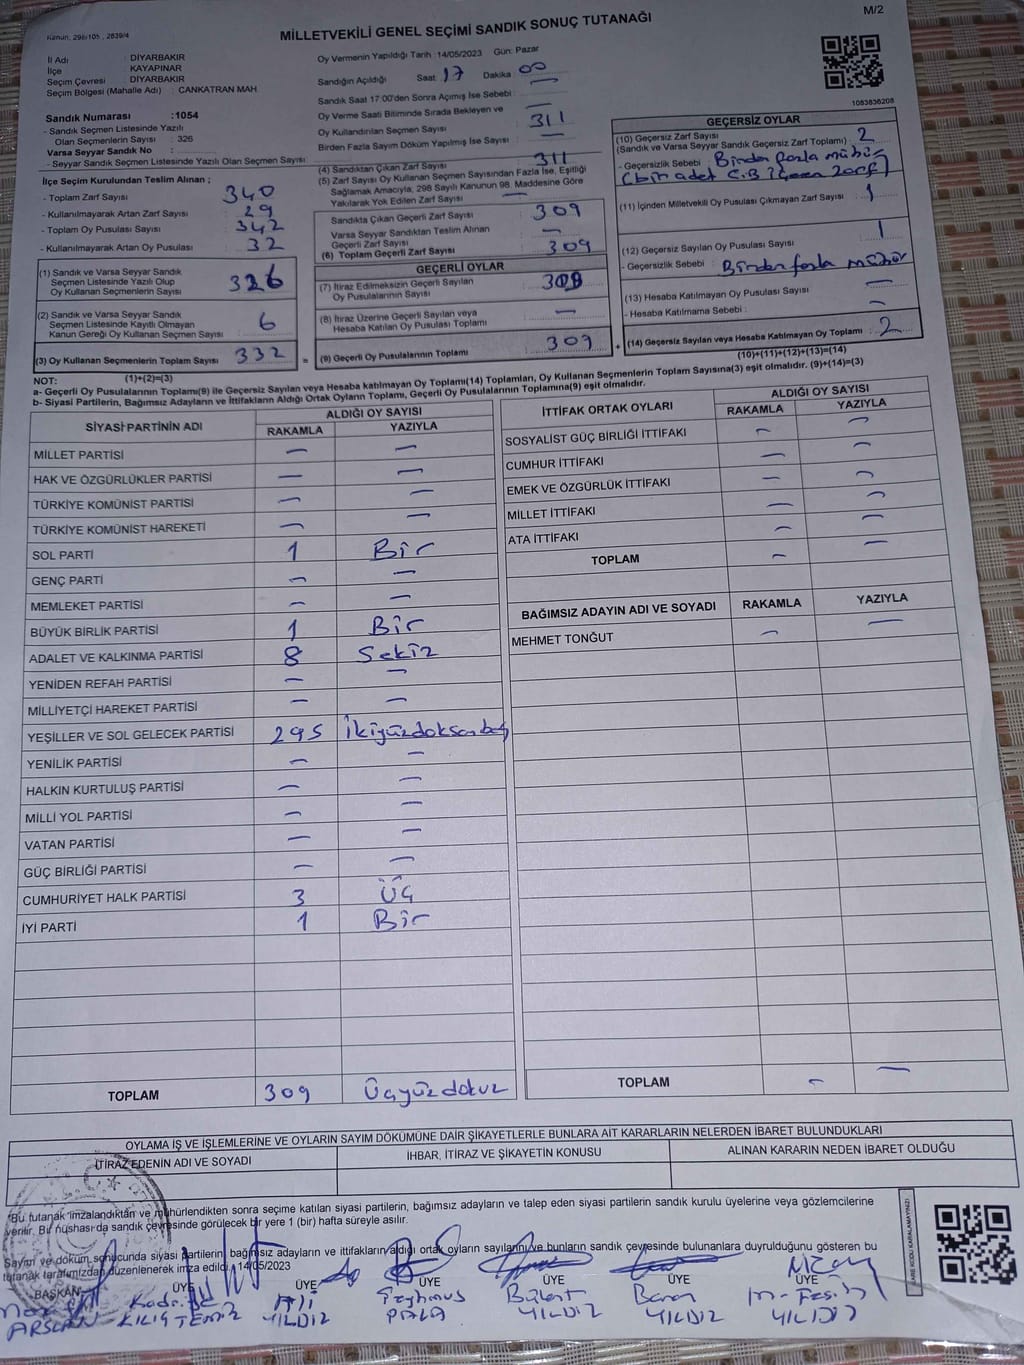 Kanun: 298/105 , 2839/4
MİLLETVEKİLİ GENEL SEÇİMİ SANDIK SONUÇ TUTANAĞI
M/2
İl Adı : DİYARBAKIR
İlçe : KAYAPINAR
Seçim Çevresi : DİYARBAKIR
Seçim Bölgesi (Mahalle Adı) : CANKATRAN MAH
Oy Vermenin Yapıldığı Tarih :14/05/2023 Gün: Pazar
Sandığın Açıldığı Saat : 17 Dakika : 00
Sandık Saat 17:00'den Sonra Açımış İse Sebebi : —
Oy Verme Saati Bitiminde Sırada Bekleyen ve —
Oy Kullandırılan Seçmen Sayısı 311
Birden Fazla Sayım Döküm Yapılmış İse Sayısı : —
1083836208
Sandık Numarası :1054
- Sandık Seçmen Listesinde Yazılı
Olan Seçmenlerin Sayısı : 326
Varsa Seyyar Sandık No :
- Seyyar Sandık Seçmen Listesinde Yazılı Olan Seçmen Sayısı :
İlçe Seçim Kurulundan Teslim Alınan ;
- Toplam Zarf Sayısı : 340
- Kullanılmayarak Artan Zarf Sayısı : 29
- Toplam Oy Pusulası Sayısı : 342
- Kullanılmayarak Artan Oy Pusulası : 32
(1) Sandık ve Varsa Seyyar Sandık
Seçmen Listesinde Yazılı Olup
Oy Kullanan Seçmenlerin Sayısı : 326
(2) Sandık ve Varsa Seyyar Sandık
Seçmen Listesinde Kayıtlı Olmayan
Kanun Gereği Oy Kullanan Seçmen Sayısı : 6
(3) Oy Kullanan Seçmenlerin Toplam Sayısı : 332
(1)+(2)=(3)
(4) Sandıktan Çıkan Zarf Sayısı 311
(5) Zarf Sayısı Oy Kullanan Seçmen Sayısından Fazla İse, Eşitliği
Sağlamak Amacıyla, 298 Sayılı Kanunun 98. Maddesine Göre
Yakılarak Yok Edilen Zarf Sayısı : —
Sandıkta Çıkan Geçerli Zarf Sayısı : 309
Varsa Seyyar Sandıktan Teslim Alınan
Geçerli Zarf Sayısı : —
(6) Toplam Geçerli Zarf Sayısı : 309
GEÇERLİ OYLAR
(7) İtiraz Edilmeksizin Geçerli Sayılan
Oy Pusulalarının Sayısı : 309
(8) İtiraz Üzerine Geçerli Sayılan veya
Hesaba Katılan Oy Pusulası Toplamı : —
= (9) Geçerli Oy Pusulalarının Toplamı : 309 +
GEÇERSİZ OYLAR
(10) Geçersiz Zarf Sayısı
(Sandık ve Varsa Seyyar Sandık Geçersiz Zarf Toplamı) : 2
- Geçersizlik Sebebi : Birden fazla mühür
(bir adet C.B İçeren Zarf)
(11) İçinden Milletvekili Oy Pusulası Çıkmayan Zarf Sayısı : 1
(12) Geçersiz Sayılan Oy Pusulası Sayısı : 1
- Geçersizlik Sebebi : Birden fazla mühür
(13) Hesaba Katılmayan Oy Pusulası Sayısı : —
- Hesaba Katılmama Sebebi : —
(14) Geçersiz Sayılan veya Hesaba Katılmayan Oy Toplamı : 2
(10)+(11)+(12)+(13)=(14)
NOT:
a- Geçerli Oy Pusulaları Toplamı(9) ile Geçersiz Sayılan veya Hesaba katılmayan Oy Toplamı(14) Toplamları, Oy Kullanan Seçmenlerin Toplam Sayısına(3) eşit olmalıdır. (9)+(14)=(3)
b- Siyasi Partilerin, Bağımsız Adayların ve İttifakların Aldığı Ortak Oyların Toplamı, Geçerli Oy Pusulalarının Toplamına(9) eşit olmalıdır.
SİYASİ PARTİNİN ADI ALDIĞI OY SAYISI
RAKAMLA YAZIYLA
MİLLET PARTİSİ — —
HAK VE ÖZGÜRLÜKLER PARTİSİ — —
TÜRKİYE KOMÜNİST PARTİSİ — —
TÜRKİYE KOMÜNİST HAREKETİ — —
SOL PARTİ 1 Bir
GENÇ PARTİ — —
MEMLEKET PARTİSİ — —
BÜYÜK BİRLİK PARTİSİ 1 Bir
ADALET VE KALKINMA PARTİSİ 8 Sekiz
YENİDEN REFAH PARTİSİ — —
MİLLİYETÇİ HAREKET PARTİSİ — —
YEŞİLLER VE SOL GELECEK PARTİSİ 295 İkiyüzdoksanbeş
YENİLİK PARTİSİ — —
HALKIN KURTULUŞ PARTİSİ — —
MİLLİ YOL PARTİSİ — —
VATAN PARTİSİ — —
GÜÇ BİRLİĞİ PARTİSİ — —
CUMHURİYET HALK PARTİSİ 3 Üç
İYİ PARTİ 1 Bir
TOPLAM 309 Üçyüzdokuz
İTTİFAK ORTAK OYLARI ALDIĞI OY SAYISI
RAKAMLA YAZIYLA
SOSYALİST GÜÇ BİRLİĞİ İTTİFAKI — —
CUMHUR İTTİFAKI — —
EMEK VE ÖZGÜRLÜK İTTİFAKI — —
MİLLET İTTİFAKI — —
ATA İTTİFAKI — —
TOPLAM — —
BAĞIMSIZ ADAYIN ADI VE SOYADI RAKAMLA YAZIYLA
MEHMET TONĞUT — —
TOPLAM — —
OYLAMA İŞ VE İŞLEMLERİNE VE OYLARIN SAYIM DÖKÜMÜNE DAİR ŞİKAYETLERLE BUNLARA AİT KARARLARIN NELERDEN İBARET BULUNDUKLARI
İTİRAZ EDENİN ADI VE SOYADI İHBAR, İTİRAZ VE ŞİKAYETİN KONUSU ALINAN KARARIN NEDEN İBARET OLDUĞU
"Bu tutanak imzalandıktan ve mühürlendikten sonra seçime katılan siyasi partilerin, bağımsız adayların ve talep eden siyasi partilerin sandık kurulu üyelerine veya gözlemcilerine
verilir. Bir nüshası da sandık çevresinde görülecek bir yere 1 (bir) hafta süreyle asılır.
Sayım ve döküm sonucunda siyasi partilerin, bağımsız adayların ve ittifakların aldığı ortak oyların sayılarını ve bunların sandık çevresinde bulunanlara duyrulduğunu gösteren bu
tutanak tarafımızdan düzenlenerek imza edildi. 14/05/2023
BAŞKAN ÜYE ÜYE ÜYE ÜYE ÜYE ÜYE
ARSLAN
Kadriye KILIÇ TEMİZ
Ali YILDIZ
Feyhmus PALA
Bülent YILDIZ
Baran YILDIZ
M. Fesih YILDIZ
KARE KODU KARALAMAYINIZ!